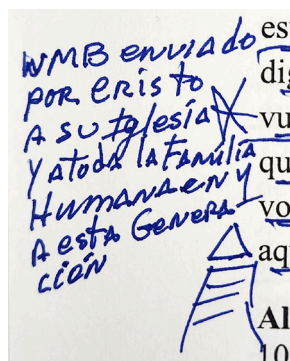 WMB enviado
por cristo
A su Iglesía
Y a toda la Família
Humana en y
A esta Genera-
ción
es
di
vu
qu
vo
aq
Al
10